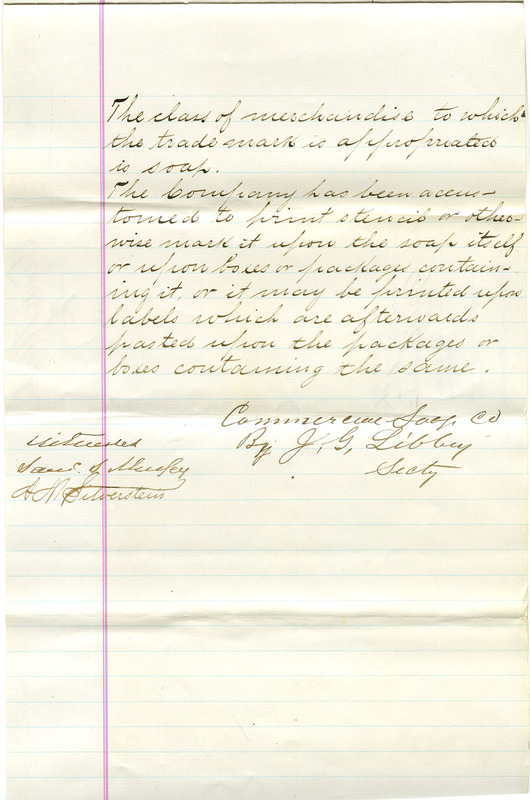 The class of merchandise to which
the trade mark is appropriated
is soap.
The Company has been accus-
tomed to print stencil or other-
wise mark it upon the soap itself
or upon boxes or packages contain-
ing it, or it may be printed upon
labels which are afterwards
pasted upon the packages or
boxes containing the same.
Commercial Soap Co
By J. G. Libbey
Secty
Witnesses
Saml. J.
A M Silverstein